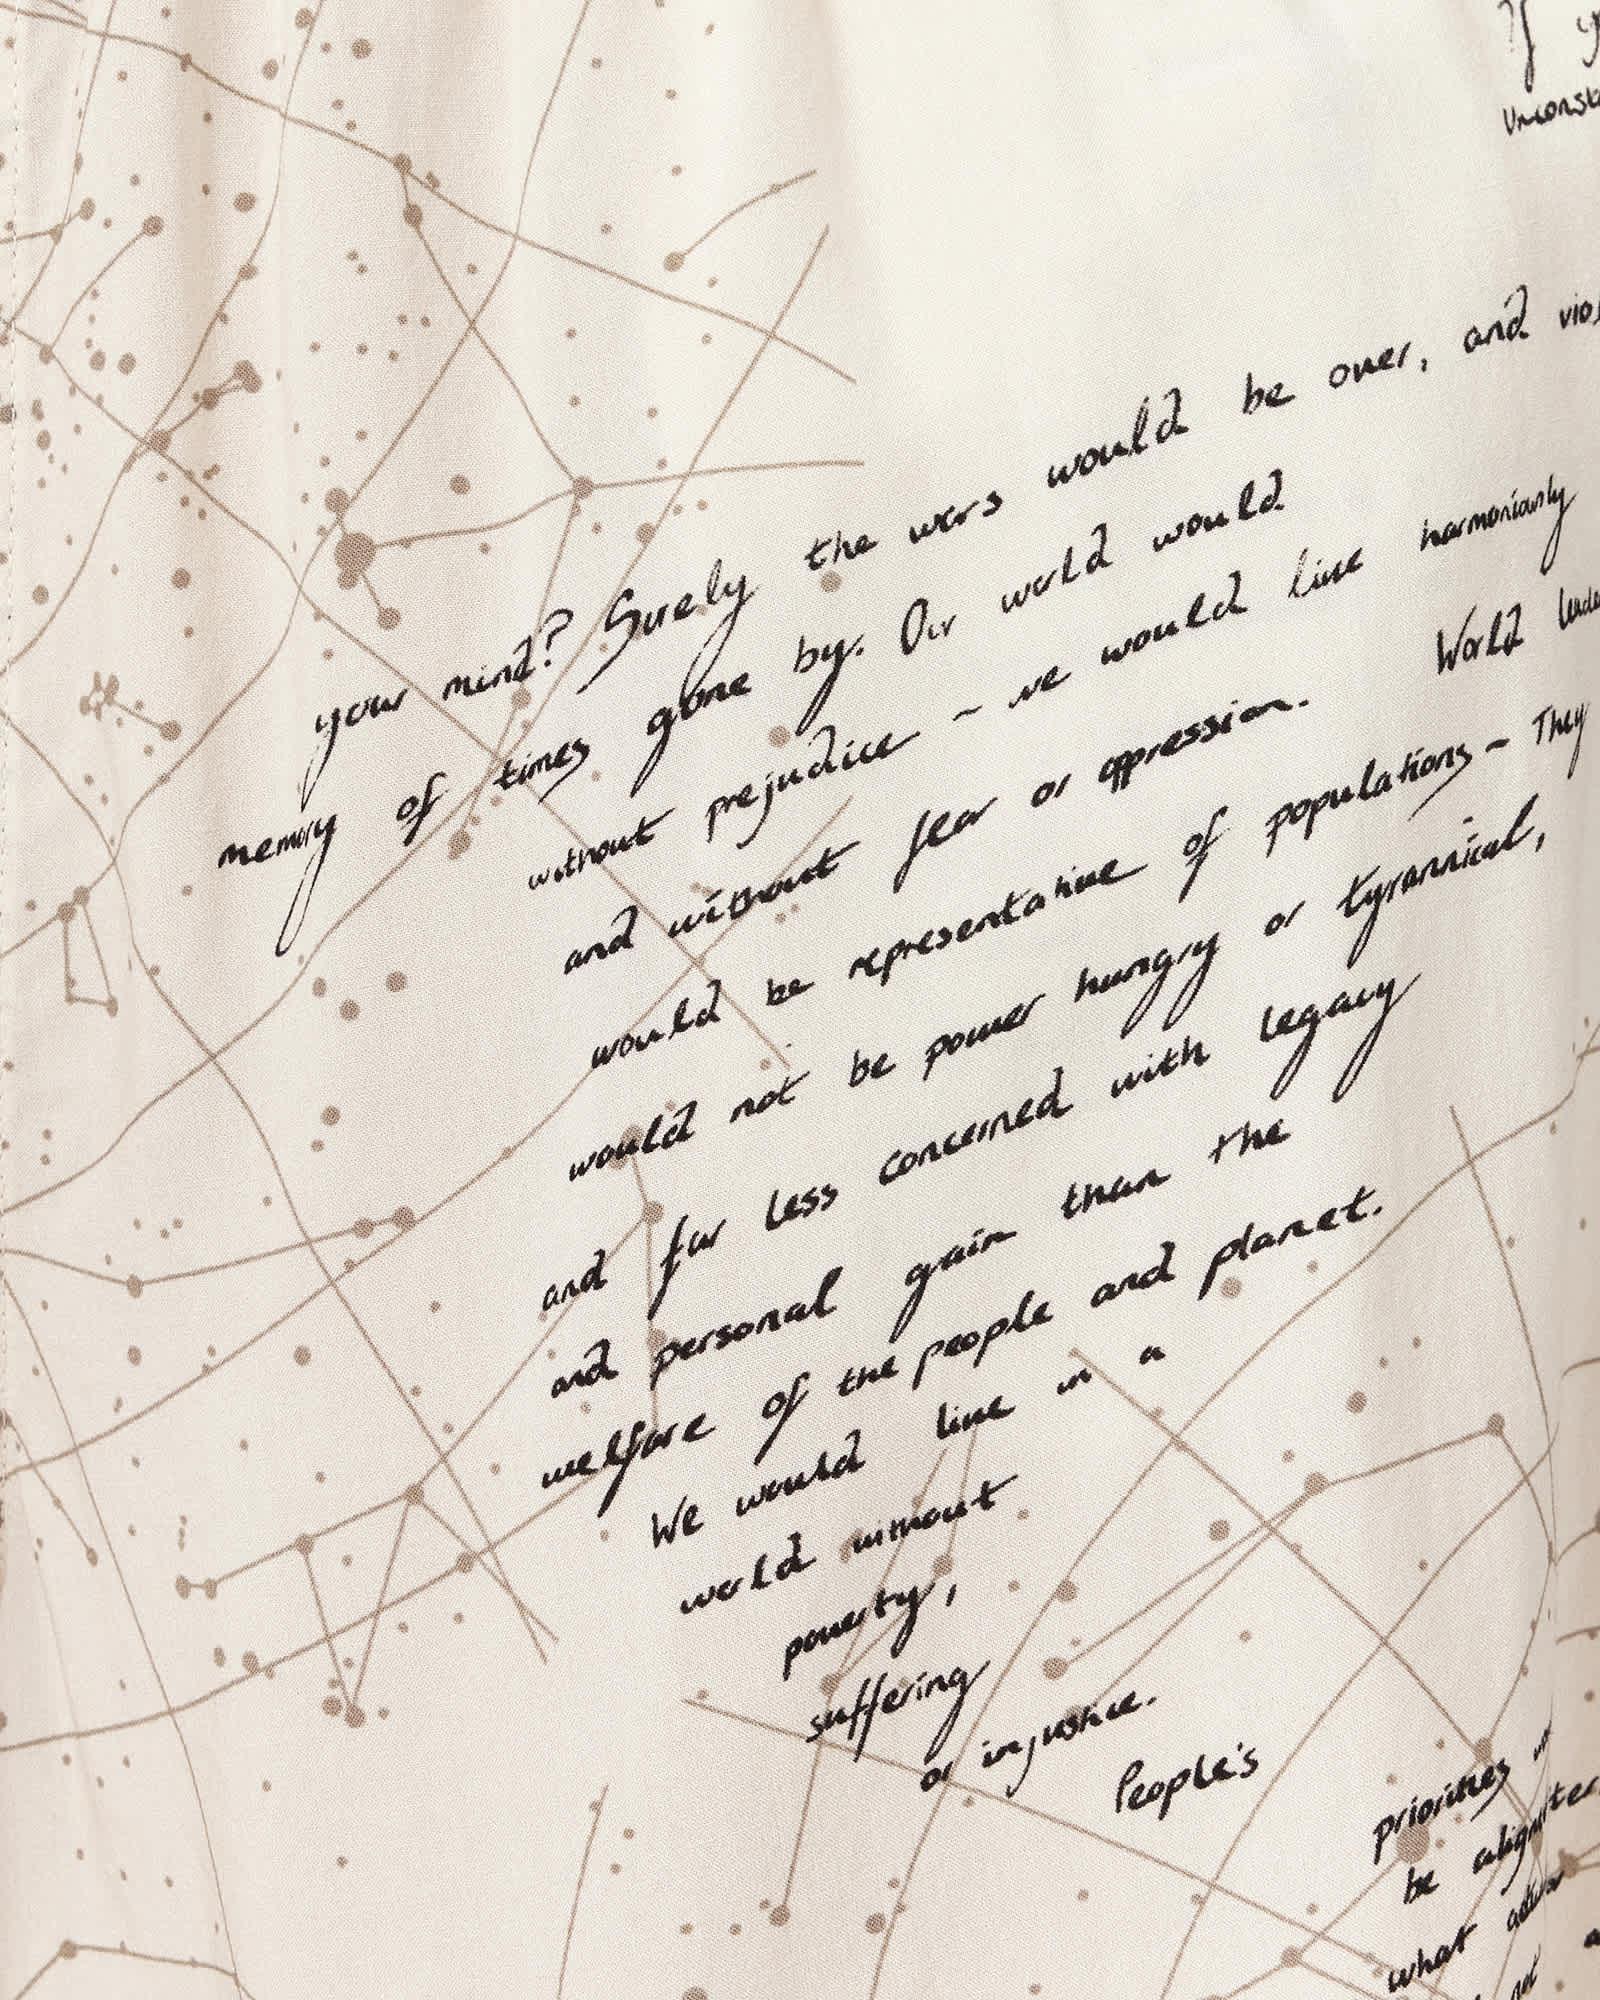 If
your mind? Surely the wars would be over, and
memory of times gone by. Our world would
without prejudice ~ we would live harmoniously
and without fear or oppression. World
would be representative of populations ~ They
would not be power hungry or tyrannical,
and far less concerned with legacy
and personal gain than the
welfare of the people and planet.
We would live in a
world without
poverty,
suffering
or injustice.
People's
priorities
be
what
not